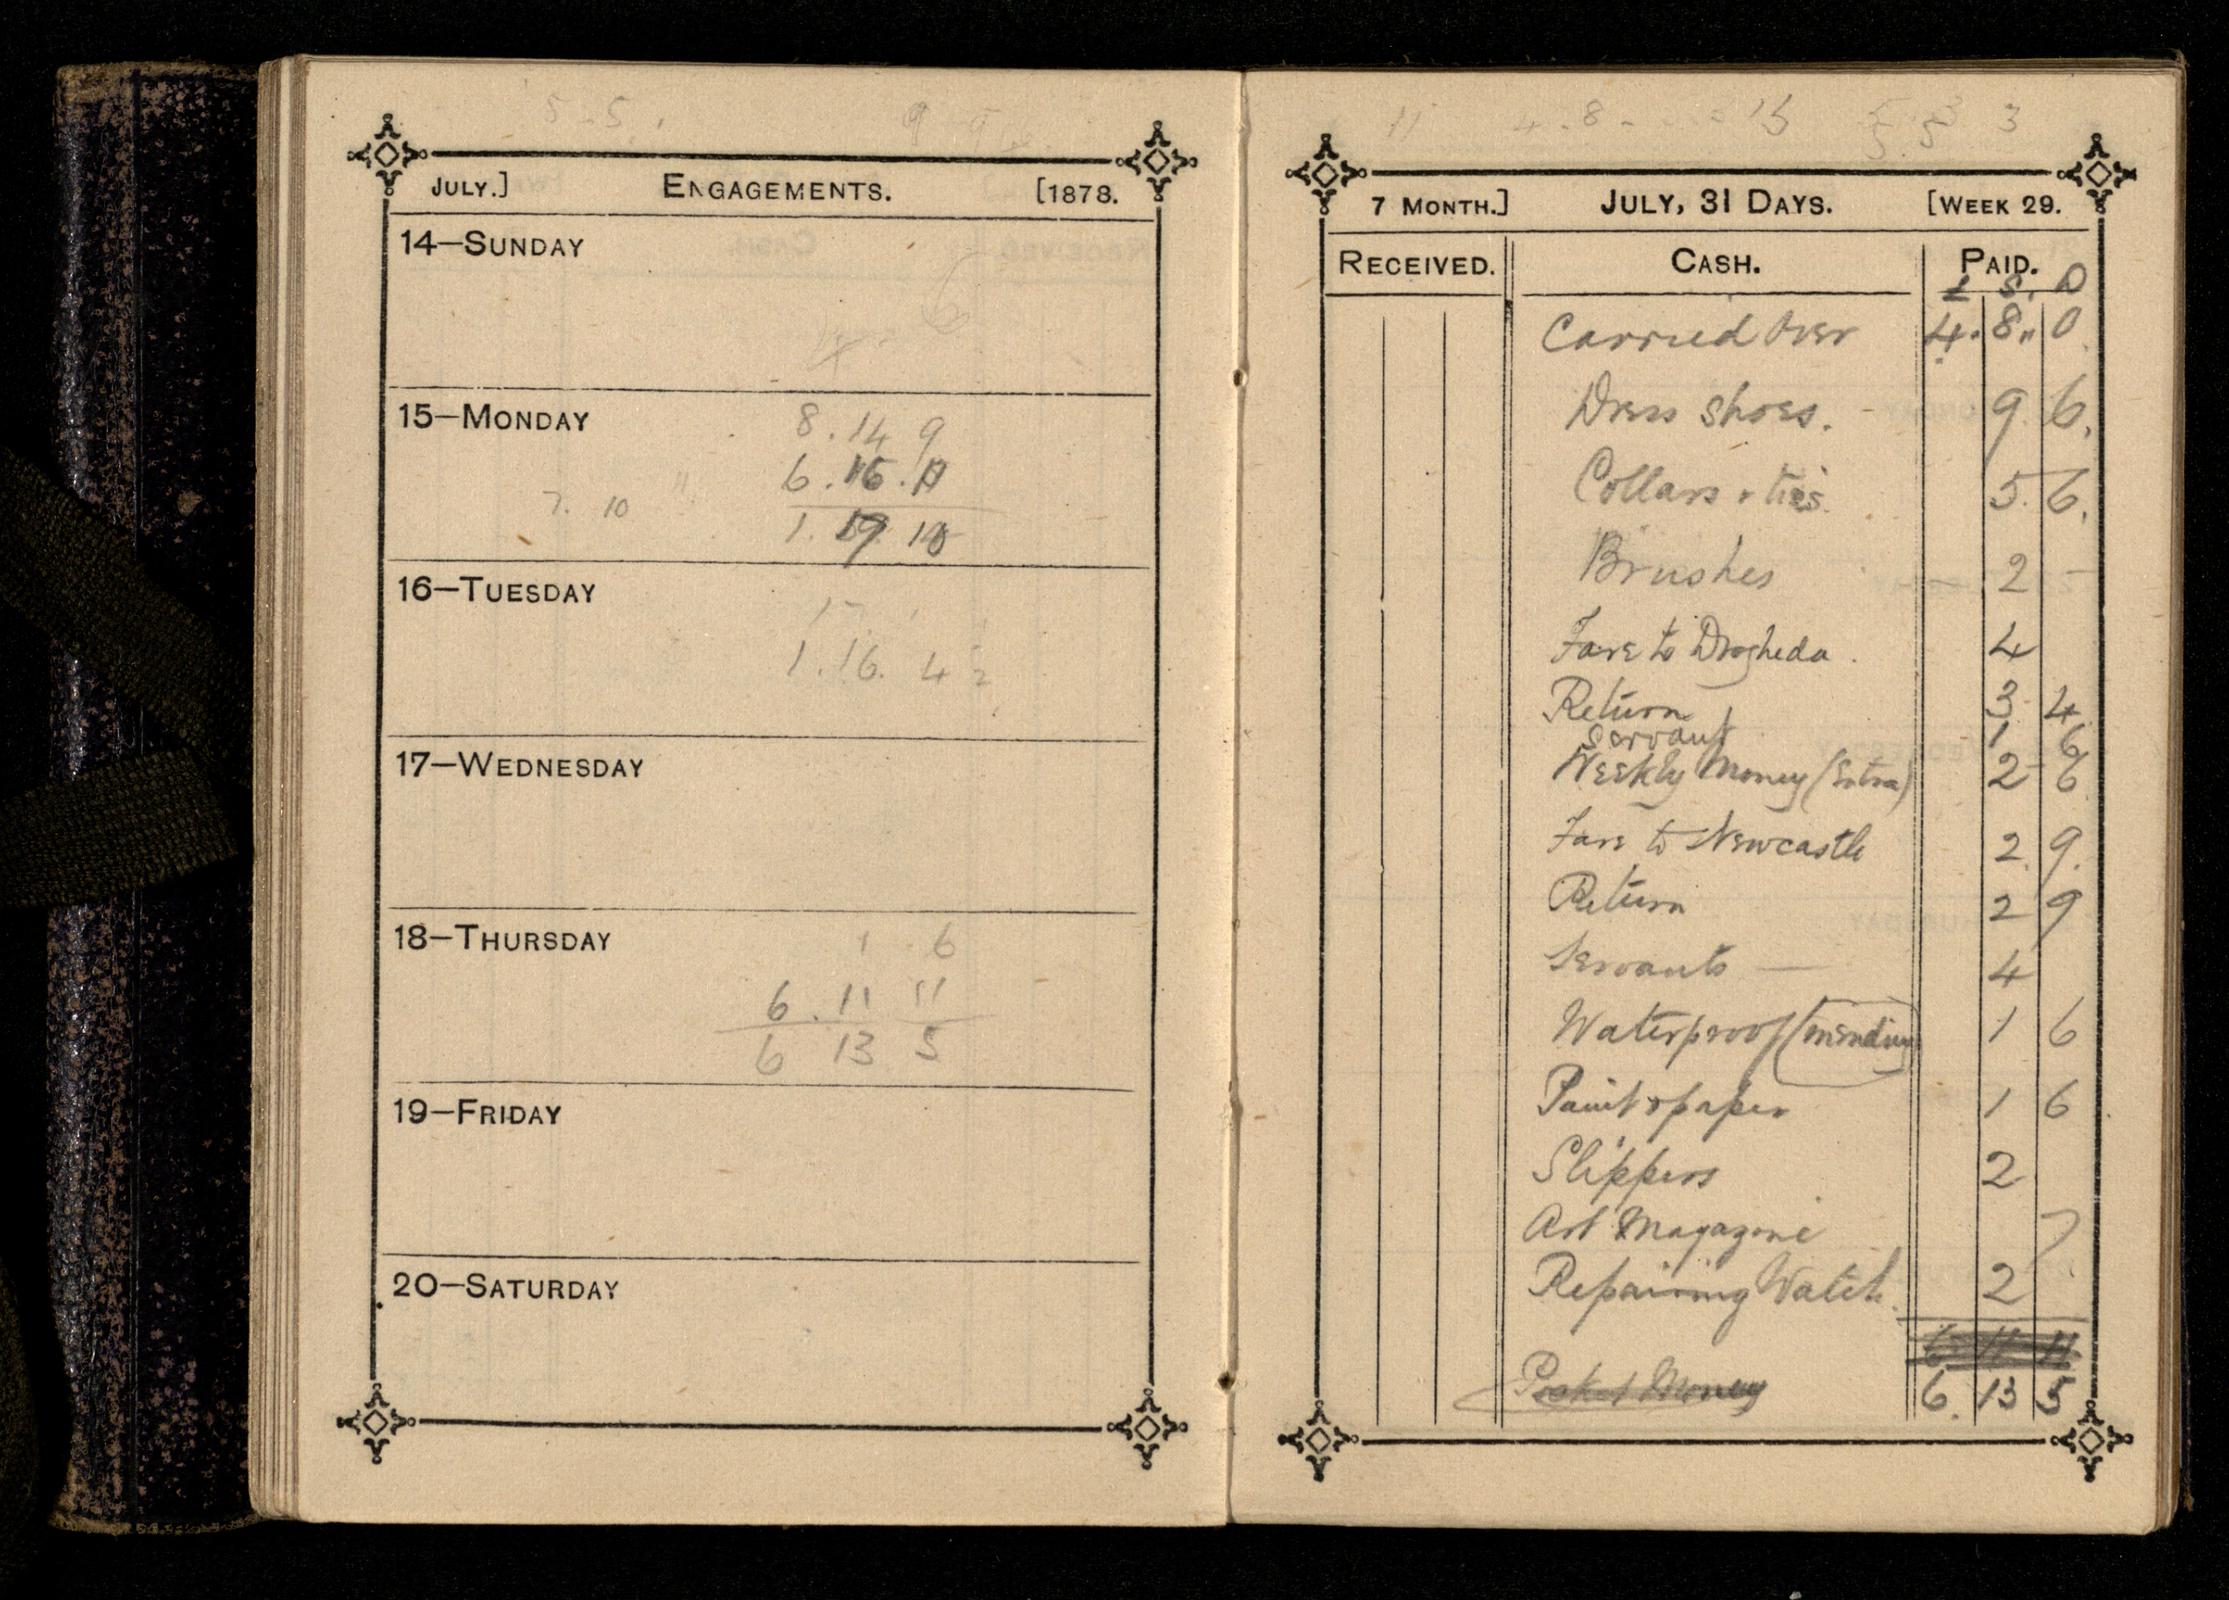 5 5
9 9
JULY.] ENGAGEMENTS. [1878.
14—SUNDAY
6
4
15—MONDAY
8 . 14 9
6 . 16 . 11
7. 10 "
1 . 19 10
16—TUESDAY
17
1 . 16 . 4 ½
17—WEDNESDAY
18—THURSDAY
1 6
6 . 11 11
6 13 5
19—FRIDAY
20—SATURDAY
11 4 . 8 - 15 3
5 5
7 MONTH.] JULY, 31 DAYS. [WEEK 29.
RECEIVED. CASH. PAID.
£ S. D
Carried Over 4 . 8 " 0
Dress shoes. - 9 6.
Collars + ties 5. 6.
Brushes 2 -
Fare to Drogheda . 4
Return 3 4
Servant 1 6
Weekly Money (Extra) 2 - 6
Fare to Newcastle 2. 9.
Return 2 9
Servants — 4
Waterproof (mending) 1 6
Paint + paper 1 6
Slippers 2
Art Magazine 7
Repairing Watch. 2
6 11 11
Pocket Money 6. 13 5